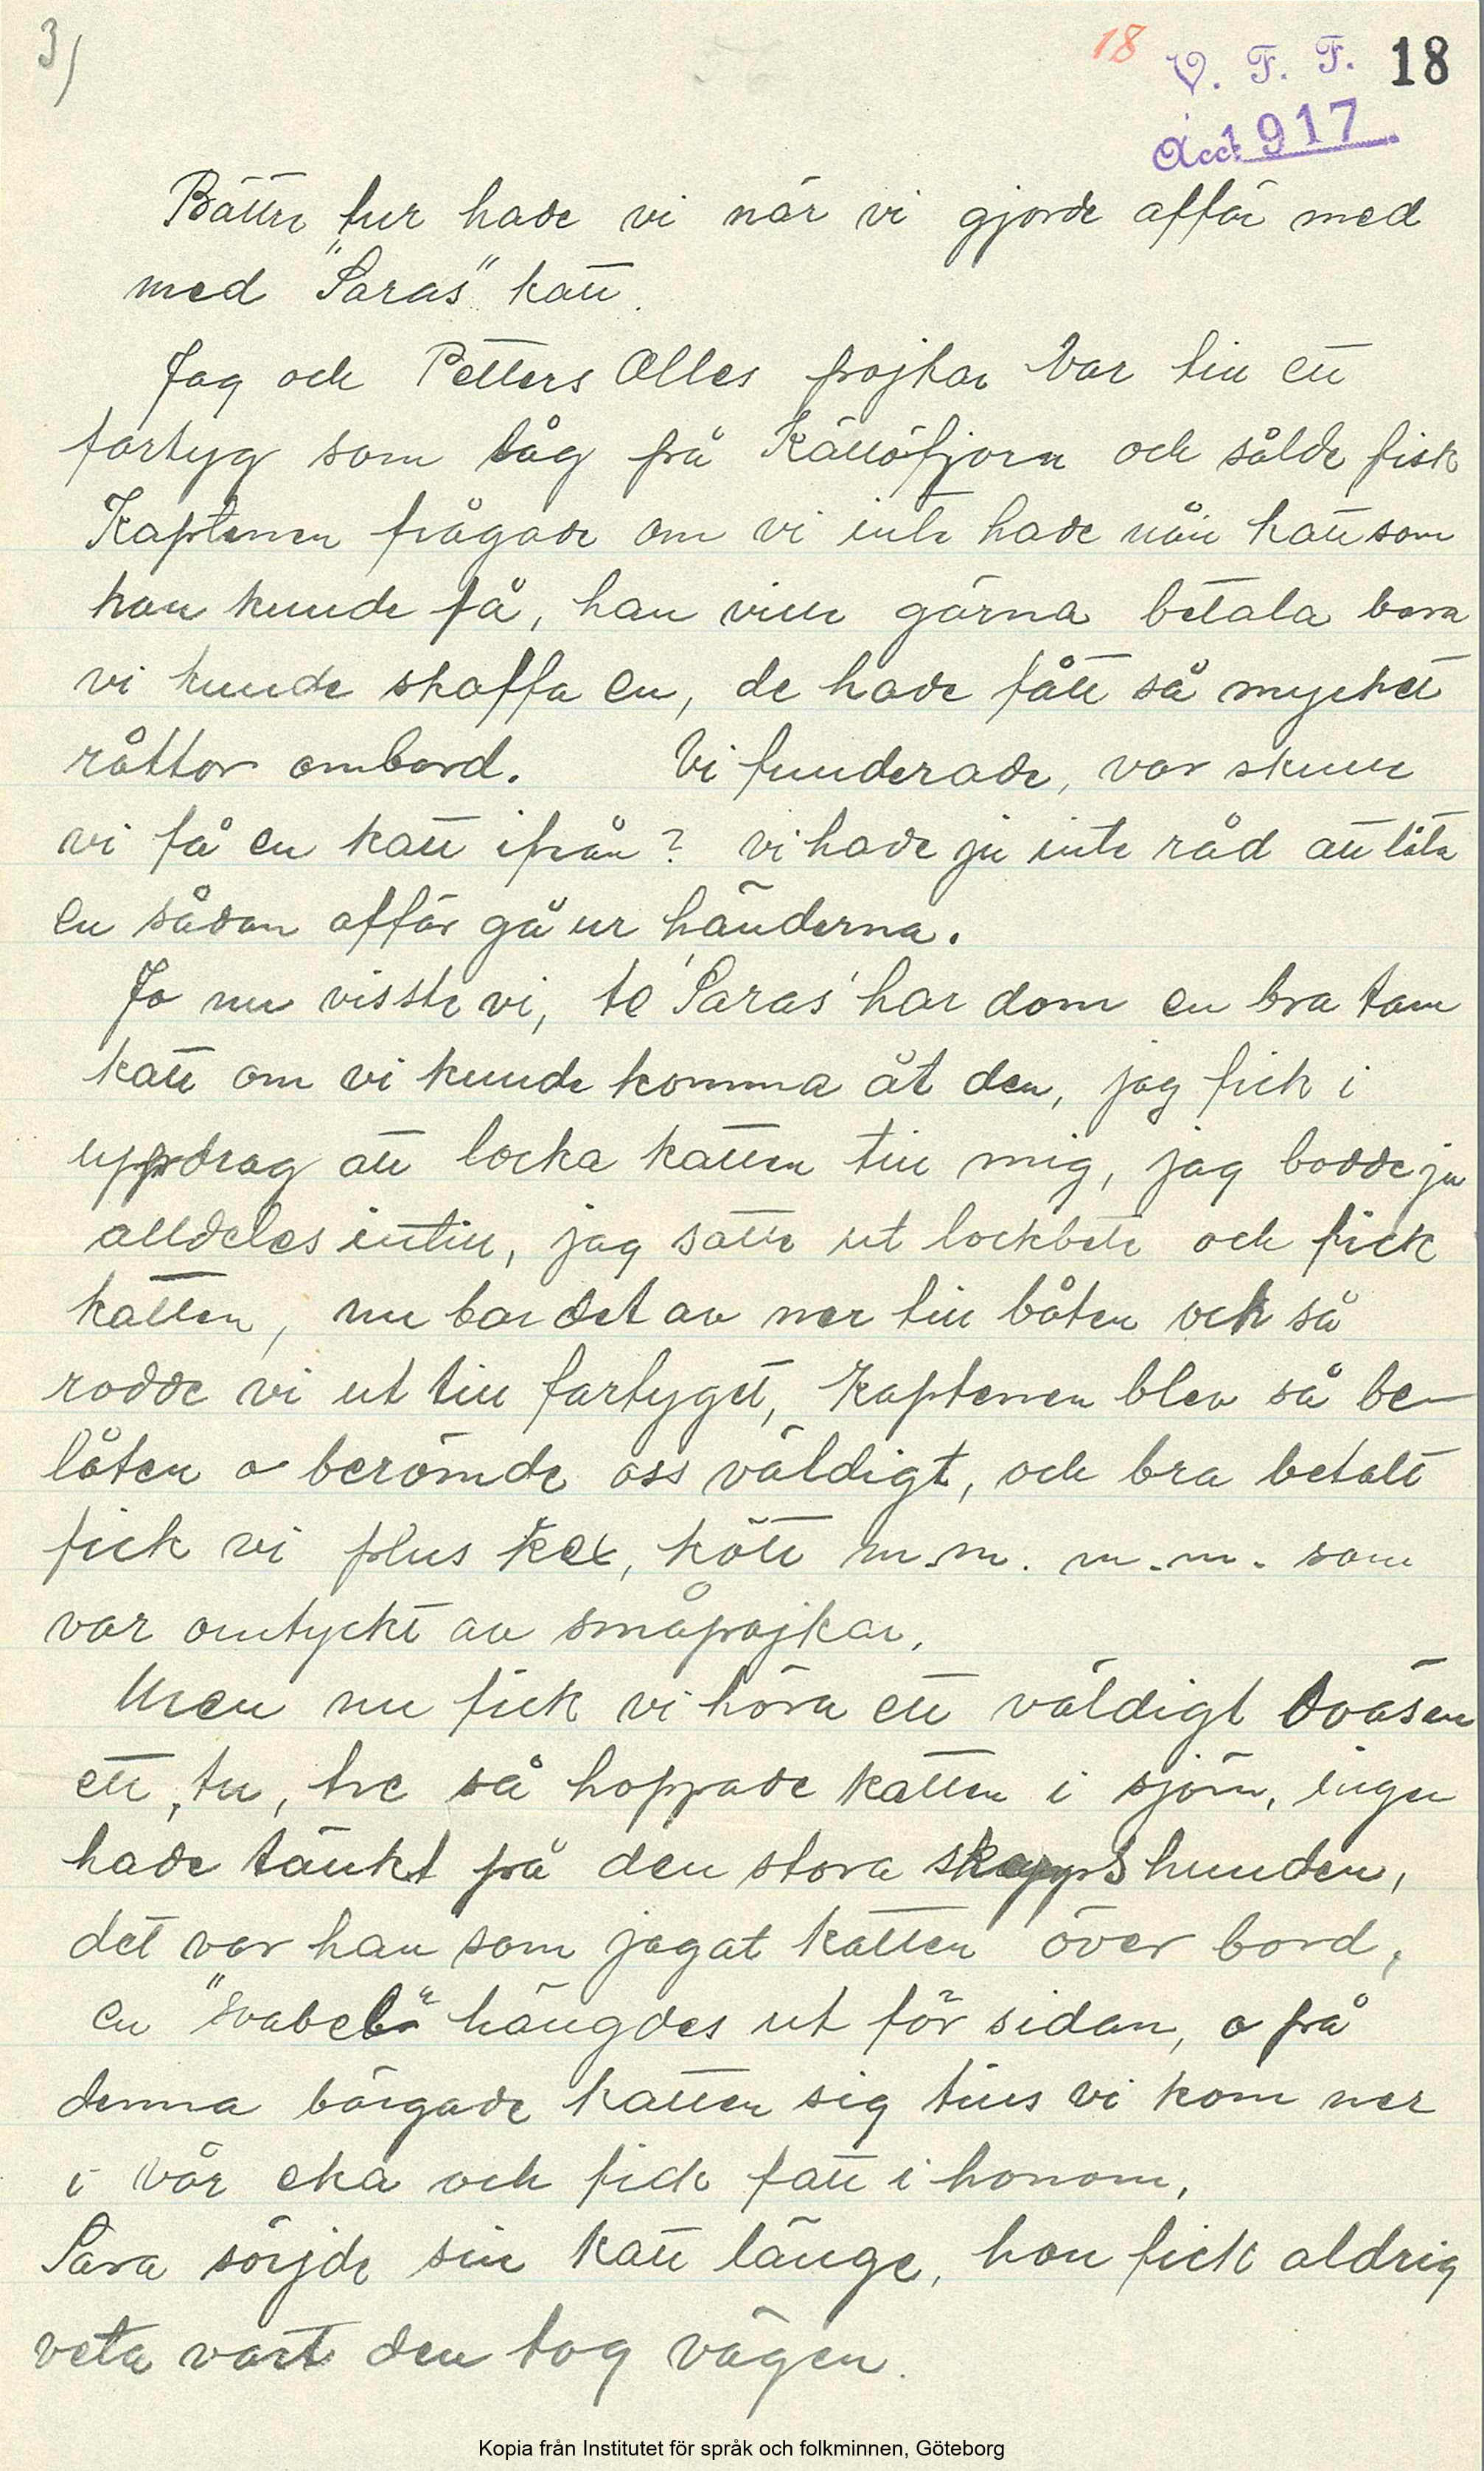 3)
18
V. F. F. 18
Acc. 1917
Bättre tur hade vi när vi gjorde affär med
med "Saras" katt.
Jag och Petters Olles pojkar var till ett
fartyg som låg på Källöfjorn och sålde fisk
Kaptenen frågade om vi inte hade nån katt som
han kunde få, han ville gärna betala bara
vi kunde skaffa en, de hade fått så mycket
råttor ombord. Vi funderade, var skulle
vi få en katt ifrån? vi hade ju inte råd att låta
en sådan affär gå ur händerna.
Jo nu visste vi, te 'Saras' har dom en bra tam
katt om vi kunde komma åt den, jag fick i
uppdrag att locka katten till mig, jag bodde ju
alldeles intill, jag satte ut lockbete och fick
katten, nu bar det av ner till båten och så
rodde vi ut till fartyget, Kaptenen blev så be-
låten o berömde oss väldigt, och bra betalt
fick vi plus kex, kött m.m. m.m. som
var omtyckt av småpojkar.
Men nu fick vi höra ett väldigt oväsen
ett, tu, tre så hoppade katten i sjön, ingen
hade tänkt på den stora skeppshunden,
det var han som jagat katten över bord,
en "svabel" hängdes ut för sidan, o på
denna bärgade katten sig tills vi kom ner
i vår eka och fick fatt i honom.
Sara sörjde sin katt länge, hon fick aldrig
veta vart den tog vägen.
Kopia från Institutet för språk och folkminnen, Göteborg